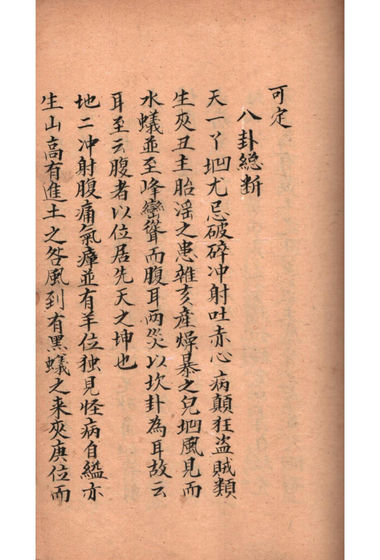 可定
八卦總断
天一丫坳尤忌破碎冲射吐赤心病顛狂盗賊類
生夾丑主胎淫之患雜亥產燥暴之兒坳風見而
水蟻並至峰巒聳而腹耳兩災以坎卦為耳故云
耳至云腹者以位居先天之坤也
地二冲射腹痛氣瘴並有羊位独見怪病自縊亦
生山高有進土之咎風到有黑蟻之来夾庚位而